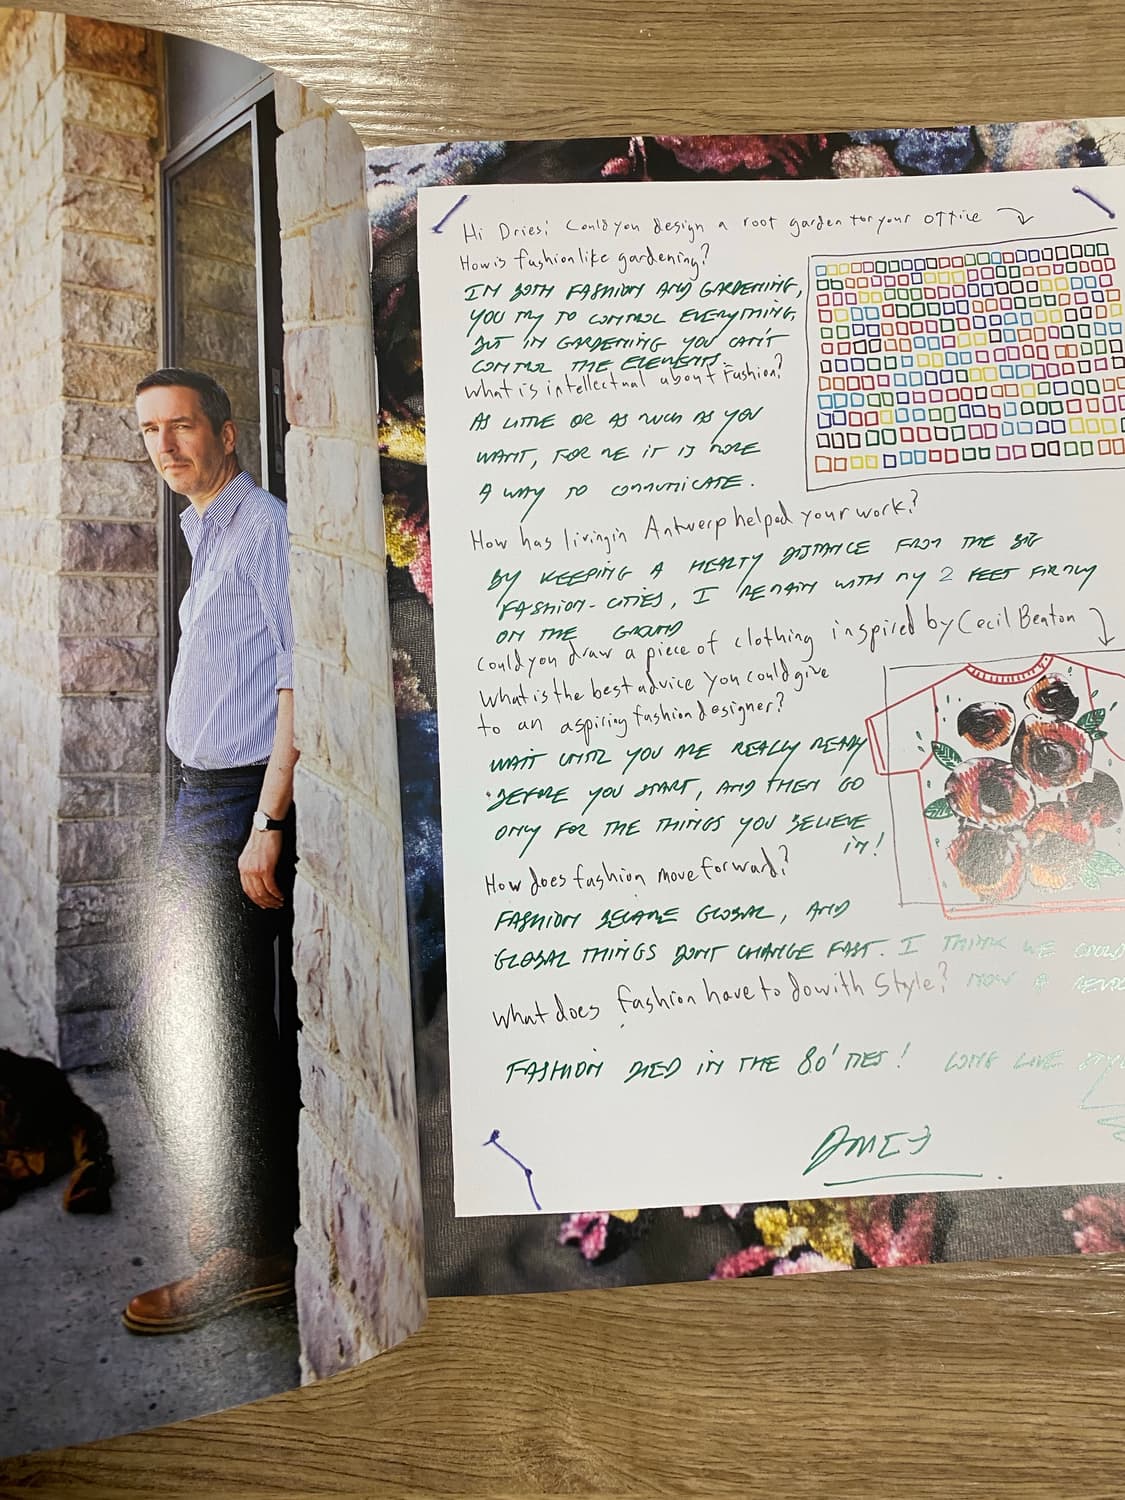 Hi Dries! Could you design a roof garden for your office
How is fashion like gardening?
IN BOTH FASHION AND GARDENING,
YOU TRY TO CONTROL EVERYTHING,
BUT IN GARDENING YOU CAN'T
CONTROL THE ELEMENTS.
What is intellectual about fashion?
AS LITTLE OR AS MUCH AS YOU
WANT, FOR ME IT IS MORE
A WAY TO COMMUNICATE.
How has living in Antwerp helped your work?
BY KEEPING A HEALTY DISTANCE FROM THE BIG
FASHION-CITIES, I REMAIN WITH MY 2 FEET FIRMLY
ON THE GROUND
Could you draw a piece of clothing inspired by Cecil Beaton
What is the best advice you could give
to an aspiring fashion designer?
WAIT UNTIL YOU ARE REALLY READY
BEFORE YOU START, AND THEN GO
ONLY FOR THE THINGS YOU BELIEVE
IN!
How does fashion move forward?
FASHION BECAME GLOBAL, AND
GLOBAL THINGS DONT CHANGE FAST. I THINK WE COULD
What does fashion have to do with Style? NOW A
FASHION DIED IN THE 80'TIES! LONG LIVE
DRIES